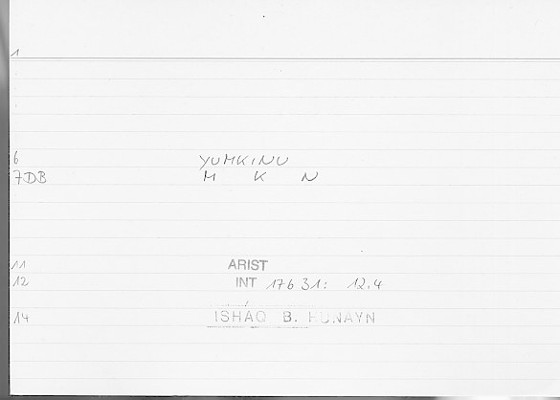 1
6 YUMKINU
7DB M K N
11 ARIST
12 INT 17631: 12.4
14 ISHAQ B. HUNAYN